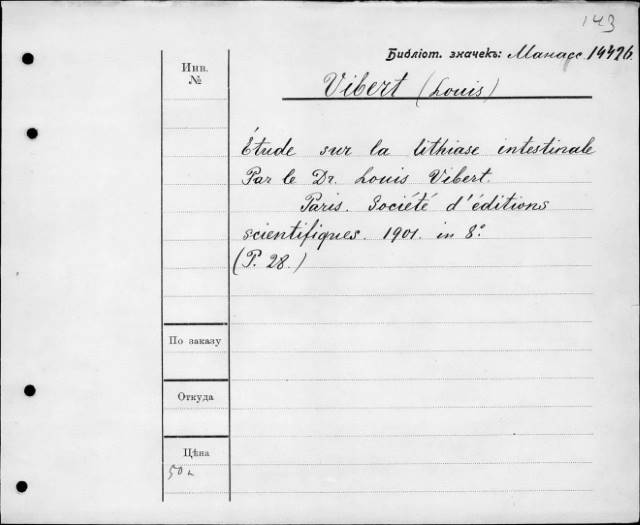 143
Библіот. значекъ: Манасс. 14426.
Инв.
№
Vibert (Louis)
Étude sur la lithiase intestinale
Par le Dr. Louis Vibert.
Paris. Société d'éditions
scientifiques. 1901. in 8°.
(P. 28.)
По заказу
Откуда
Цѣна
50 к